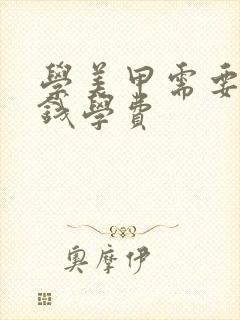 學美甲需要
錢學費
奧摩伊